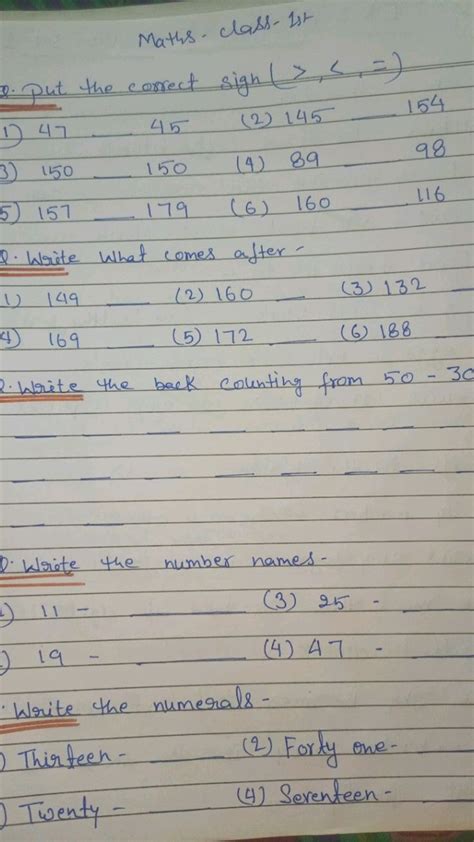 Maths - Class - 1st
Q. Put the correct sign ( > , < , = )
1) 47 __ 45 (2) 145 __ 154
3) 150 __ 150 (4) 89 __ 98
5) 157 __ 179 (6) 160 __ 116
Q. Write What comes after -
1) 149 __ (2) 160 __ (3) 132 __
4) 169 __ (5) 172 __ (6) 188 __
Q. Write the back counting from 50 - 30
Q. Write the number names -
) 11 - __ (3) 25 - __
) 19 - __ (4) 47 - __
. Write the numerals -
) Thirteen - __ (2) Forty one - __
) Twenty - __ (4) Seventeen - __